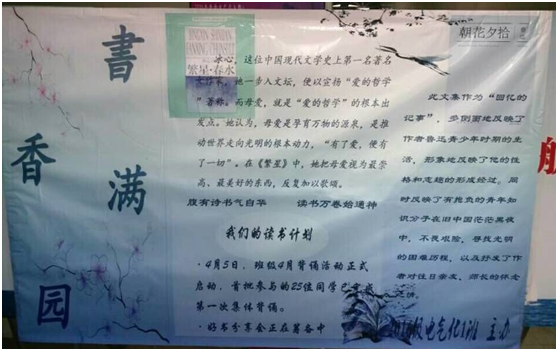 書
香
满
园
FANXING CHUNSHUI
繁星·春水
冰心，这位中国现代文学史上第一名著名
女作家，她一步入文坛，便以宣扬“爱的哲学
”著称。而母爱，就是“爱的哲学”的根本出
发点。她认为，母爱是孕育万物的源泉，是推
动世界走向光明的根本动力，“有了爱，便有
了一切”。在《繁星》中，她把母爱视为最崇
高、最美好的东西，反复加以歌颂。
腹有诗书气自华 读书万卷始通神
我们的读书计划
·4月5日，班级4月背诵活动正式
启动，首批参与的25位同学已完成
第一次集体背诵。
·好书分享会正在筹备中
朝花夕拾
此文集作为“回忆的
记事”，多侧面地反映了
作者鲁迅青少年时期的生
活，形象地反映了他的性
格和志趣的形成经过。同
时反映了有抱负的青年知
识分子在旧中国茫茫黑夜
中，不畏艰险，寻找光明
的困难历程，以及抒发了作
者对往日亲友、师长的怀念
之情。
级电气化1班 主办